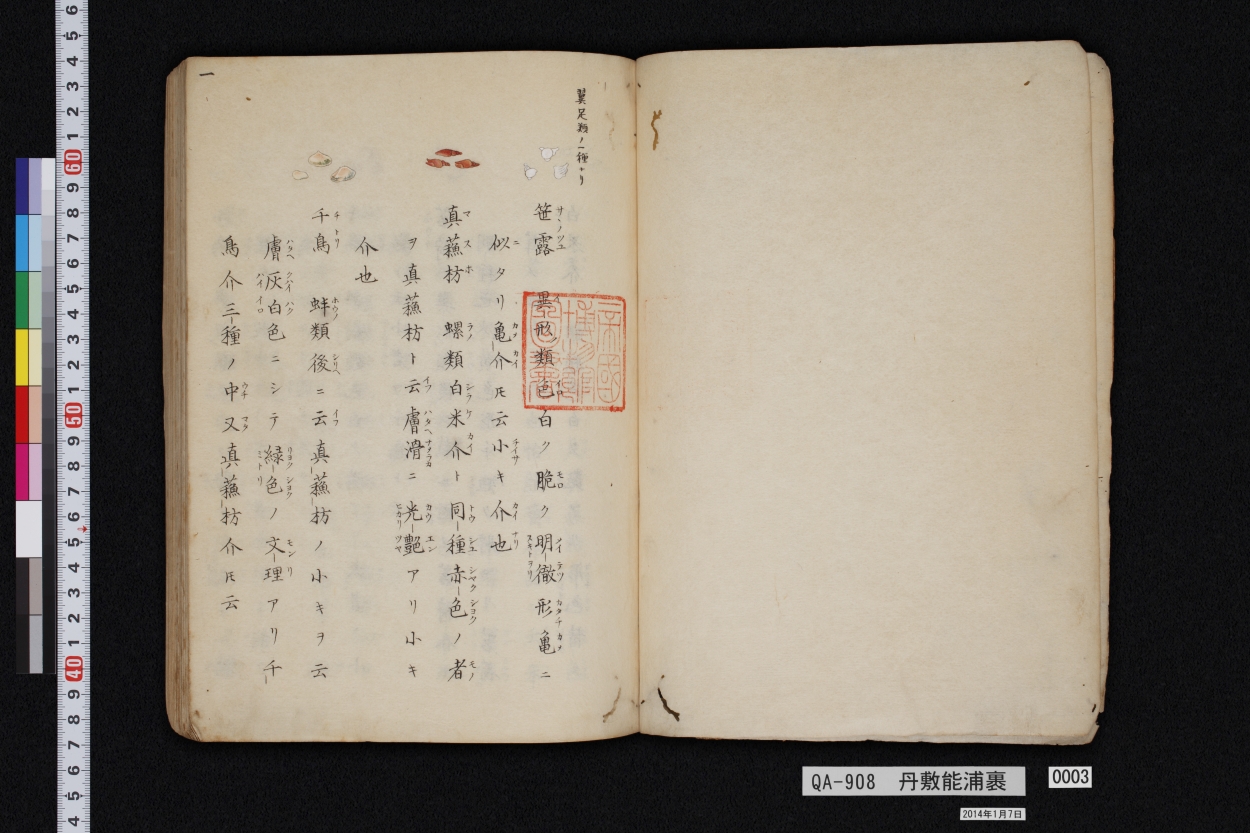 翼足類ノ一種ナリ
笹露 異形ノ類色白ク脆ク明徹形亀ニ
似タリ亀介トモ云小キ介也
真蘓枋 螺類白米介ト同種赤色ノ者
ヲ真蘓枋ト云膚滑ニ光艶アリ小キ
介也
千鳥 蚌類後ニ云真蘓枋ノ小キヲ云
膚灰白色ニシテ緑色ノ文理アリ千
鳥介三種ノ中又真蘓枋介トモ云
一
QA-908 丹敷能浦裹
0003
2014年1月7日